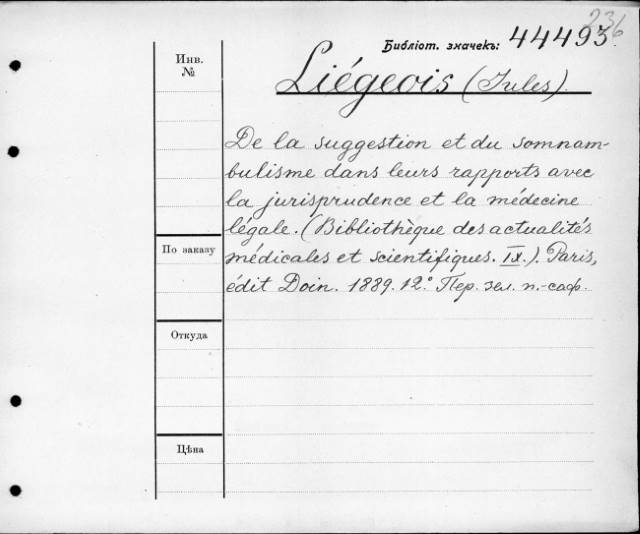 236
Библіот. значекъ: 44493.
Инв.
№
Liégeois (Jules).
De la suggestion et du somnam-
bulisme dans leurs rapports avec
la jurisprudence et la médecine
légale. (Bibliothèque des actualités
По заказу
médicales et scientifiques. IX.). Paris,
édit Doin. 1889. 12° Пер. зел. п.-саф.
Откуда
Цѣна